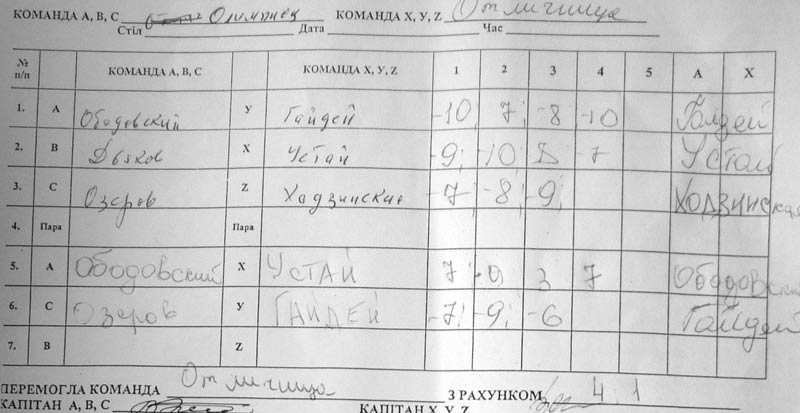 КОМАНДА А, В, С Олимпиец КОМАНДА Х, У, Z Отличница
Стіл Дата Час
№ п/п КОМАНДА А, В, С КОМАНДА Х, У, Z 1 2 3 4 5 А Х
1. А Ободовский У Гайдей -10; 7; -8 -10 Гайдей
2. В Дьяков Х Устай -9; -10 8 -7 УСТАЙ
3. С Озеров Z Хадзинская -7; -8; -9; ХОДЗИНСКАЯ
4. Пара Пара
5. А Ободовский Х УСТАЙ 7 -9 3 7 Ободовский
6. С Озеров У ГАЙДЕЙ -7; -9; -6 Гайдей
7. В Z
ПЕРЕМОГЛА КОМАНДА Отличница З РАХУНКОМ 4:1
КАПІТАН А, В, С КАПІТАН Х, У, Z